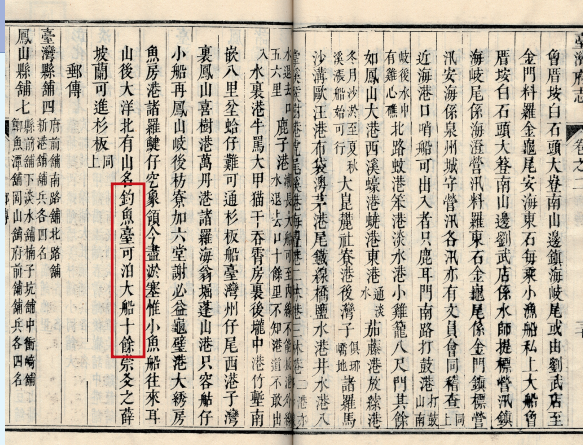 臺灣府志 卷之二
魯厝垵白石頭大夆南山邊劉武店海岐尾或由劉武店至
金門料羅金龜尾安海東石每乘小漁船私上大船曾
厝垵白石頭大夆南山邊劉武店係水師提標營汛鎮
海岐尾係海澄營汛料羅東石金龜尾係金門鎮標營
汛安海係泉州城守營汛各汛亦有文員會同稽查上同
近海港口哨船可出入者只鹿耳門南路打鼓港打鼓山南
岐後水中有雞心礁北路蚊港笨港淡水港小雞籠八尺門其餘
如鳳山大港西溪蠔港蟯港東港通淡水茄藤港放
冬月沙於至夏秋溪漲船始可行大崑麓社寮港後灣子俱瑯嶠地諸羅馬
沙溝歐汪港布袋澳茅港尾鐵線橋鹽水港井水港八
港二港亦
水退去口鹿子港水退去口十餘里不知港道不敢出
入水裏港牛罵大甲貓干吞霄房裏後壠中港竹塹南
嵌八里坌蛤仔難可通杉板船臺灣州仔尾西港子灣
裏鳳山喜樹港萬丹港諸羅海翁堀蓬山港只容䑩仔
小船再鳳山岐後枋寮加六堂謝必益龜壁港大綉房
魚房港諸羅䲟仔空象領今盡淤塞惟小魚船往來耳
山後大洋北有山名釣魚臺可泊大船十餘崇爻之薛
坡蘭可進杉板上同
郵傳
臺灣縣舖四府前舖南路舖北路舖新港舖舖兵各四名
鳳山縣舖七縣前舖下水舖楠子坑舖中衝崎舖魚潭舖岡山舖府前舖舖兵各四名